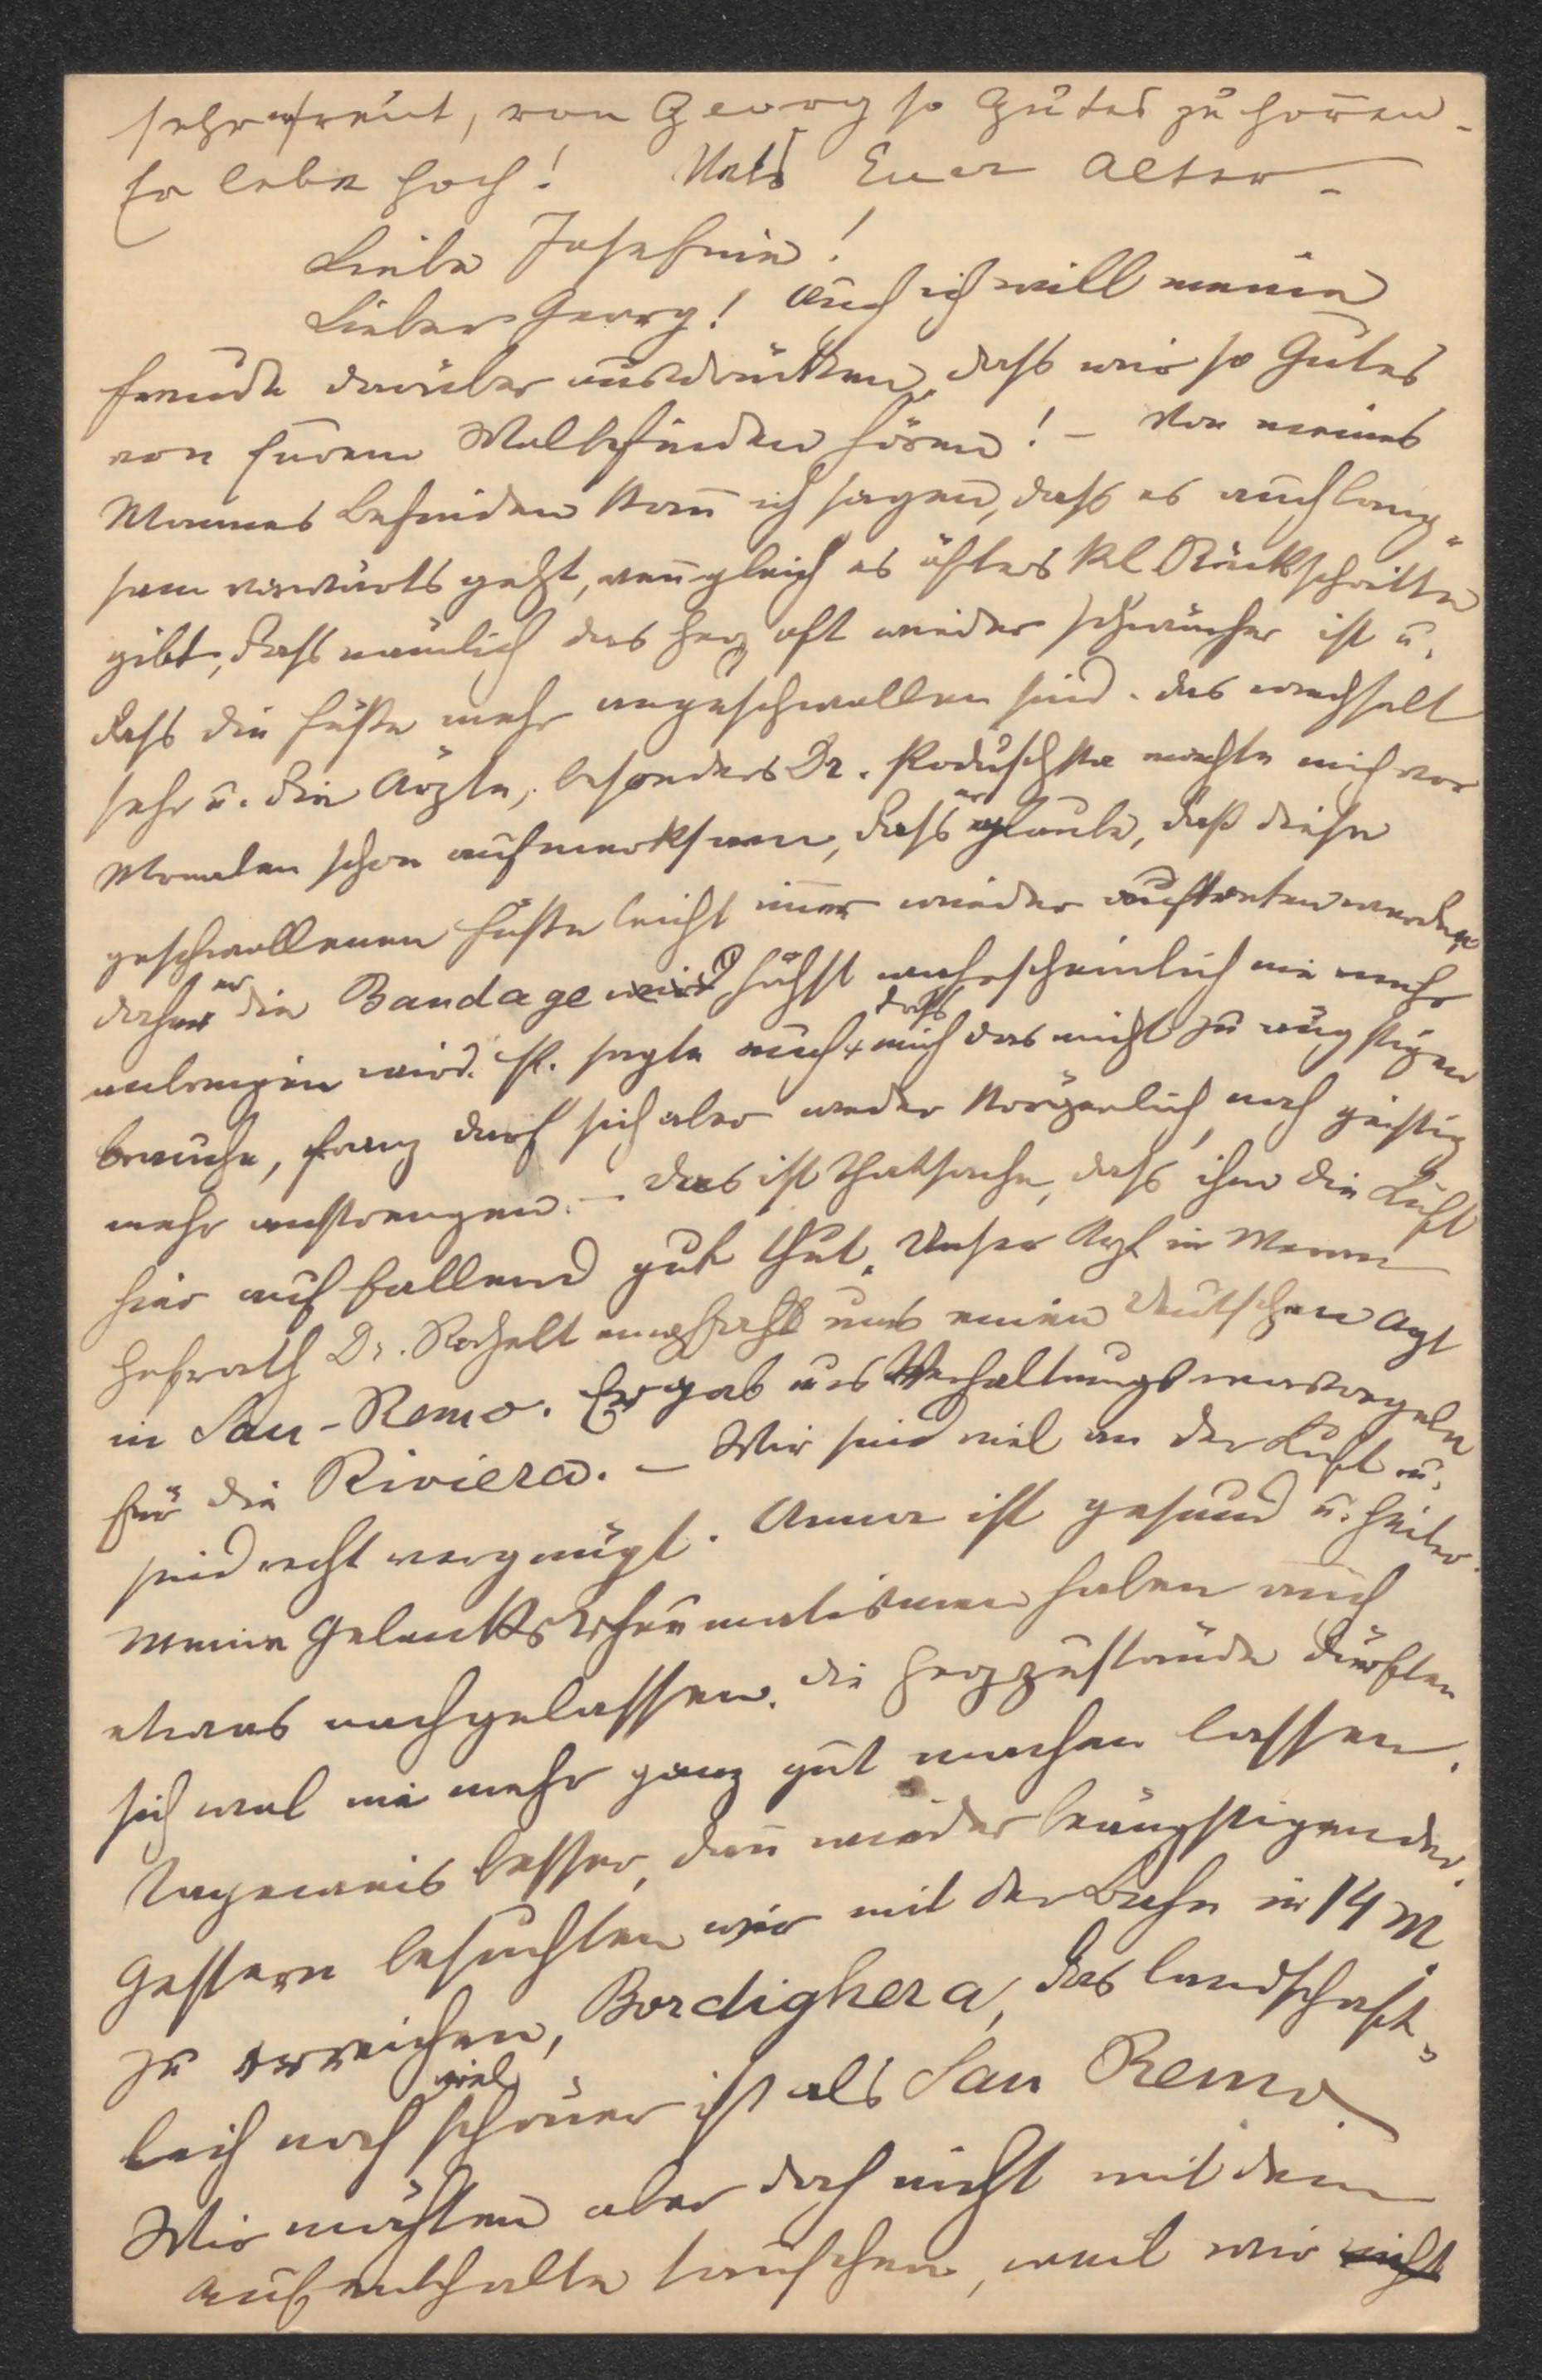 sehr freut, von Georg so Gutes zu hören –
Er lebe hoch! Euer Alter –
Liebe Josefine!
Lieber Georg! Auch ich will meine
Freude darüber ausdrücken, dass wir so Gutes
von Eurem Wolbefinden hören! – Von meines
Mannes Befinden kann ich sagen, dass es auch lang=
sam vorwärts geht, wenngleich es öfters kl. Rückschritte
gibt, dass nämlich das Herz oft wieder schwächer ist u.
dass die Füße mehr angeschwollen sind. Das wechselt
sehr u. die Ärzte, besonders Dr. machte mich vor
Monaten schon aufmerksam, dass er glaube, daß diese
geschwollenen Füße leicht immer wieder auftreten werden,
daher er die Bandage höchst wahrscheinlich nie mehr
anbringen wird. P. sagte auch, dass mich das nicht zu ängstigen
brauche, Franz darf sich aber weder körperlich, noch geistig
mehr anstrengen. – Das ist Thatsache, dass ihm die Luft
hier auffallend gut thut. Unser Arzt in Meran
Hofrath Dr. Rochelt empfahl uns einen deutschen Arzt
in San-Remo. Er gab uns Verhaltungsmassregeln
für die Riviera. – Wir sind viel an der Luft u.
sind recht vergnügt. Anna ist gesund u. heiter.
Meine Gelenksrheumatismen haben auch
etwas nachgelassen. Die Herzzustände dürften
sich wol nie mehr ganz gut machen lassen.
Tageweis besser, dann wieder beängstigender.
Gestern besuchten wir mit der Bahn in 14 M.
zu erreichen, Bordighera, das landschaft=
lich noch viel schöner ist als San Remo.
Wir möchten aber doch nicht mit dem
Aufenthalte tauschen, weil wir nicht